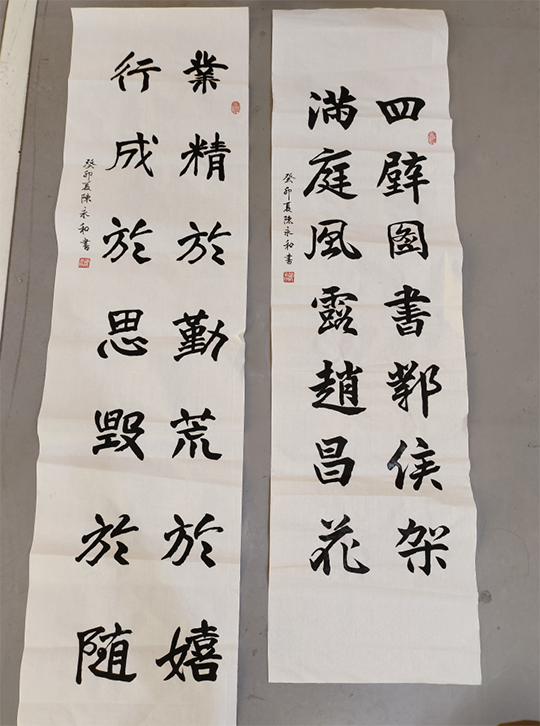 四壁圖書鄴侯架
滿庭風露趙昌花
癸卯夏陳永和書
業精於勤荒於嬉
行成於思毀於随
癸卯夏陳永和書